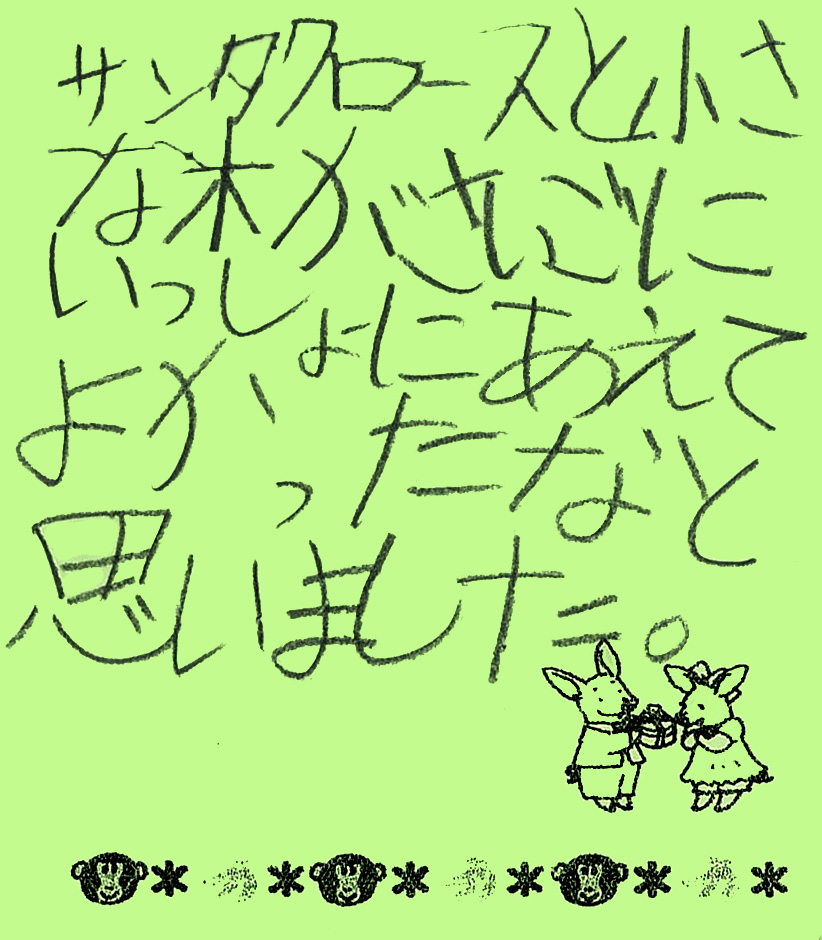 サンタクロースと小さ
な木がさいごに
いっしょにあえて
よかったなと
思いました。